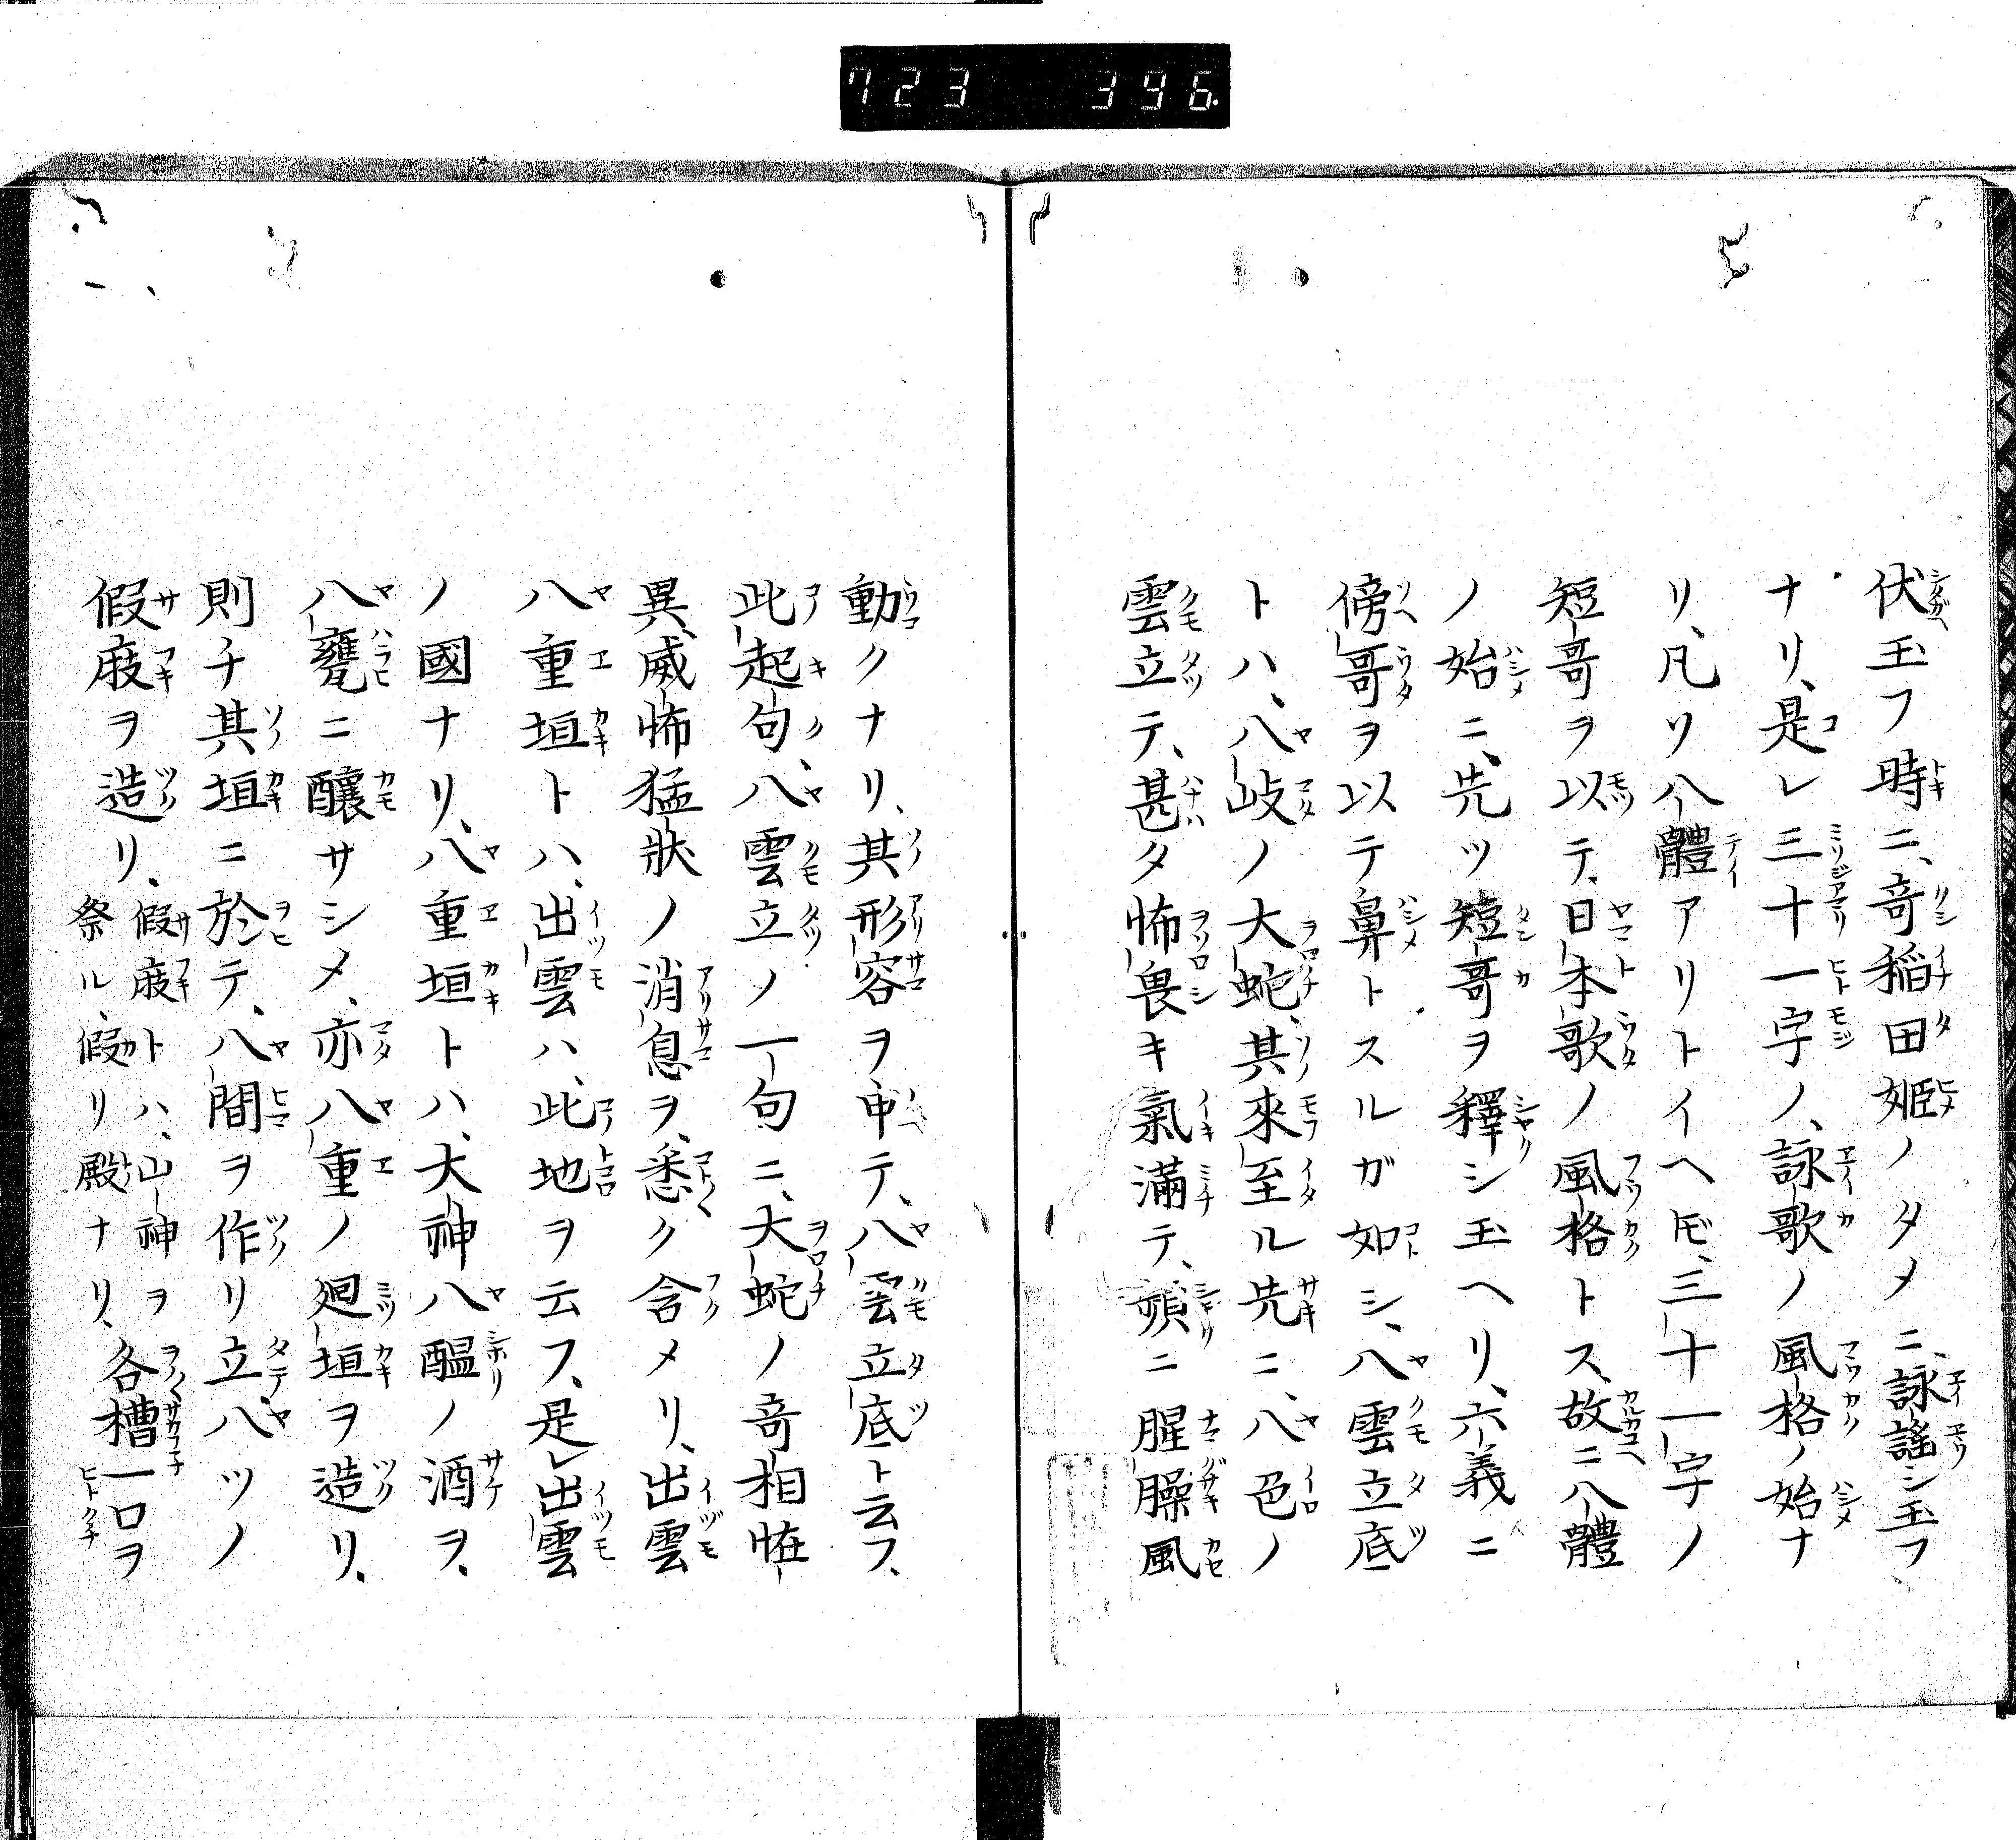 723 396.
伏玉フ時ニ、竒稲田姫ノタメニ、詠謡シ玉フ
ナリ、是レ三十一字ノ、詠歌ノ風格ノ始ナ
リ、凡ソ八體アリトイヘ𪜈、三十一字ノ
短哥ヲ以テ、日本歌ノ風格トス、故ニ八體
ノ始ニ、先ツ短哥ヲ釋シ玉ヘリ、六義ニ
傍哥ヲ以テ鼻トスルガ如シ、八雲立底
トハ、八岐ノ大蛇、其來至ル先ニ、八色ノ
雲立テ、甚タ怖畏キ氣滿テ、頻ニ腥臊風
動クナリ、其形容ヲ申テ、八雲立底ト云フ、
此起句、八雲立ノ一句ニ、大蛇ノ竒相恠
異、威怖猛狀ノ消息ヲ、悉ク含メリ、出雲
八重垣トハ、出雲ハ、此地ヲ云フ、是レ出雲
ノ國ナリ、八重垣トハ、大神八醞ノ酒ヲ、
八甕ニ釀サシメ、亦八重ノ廻垣ヲ造リ、
則チ其垣ニ於テ、八間ヲ作リ立、八ツノ
假庪ヲ造リ、假庪トハ、山神ヲ
祭ル、假リ殿ナリ、各槽一口ヲ